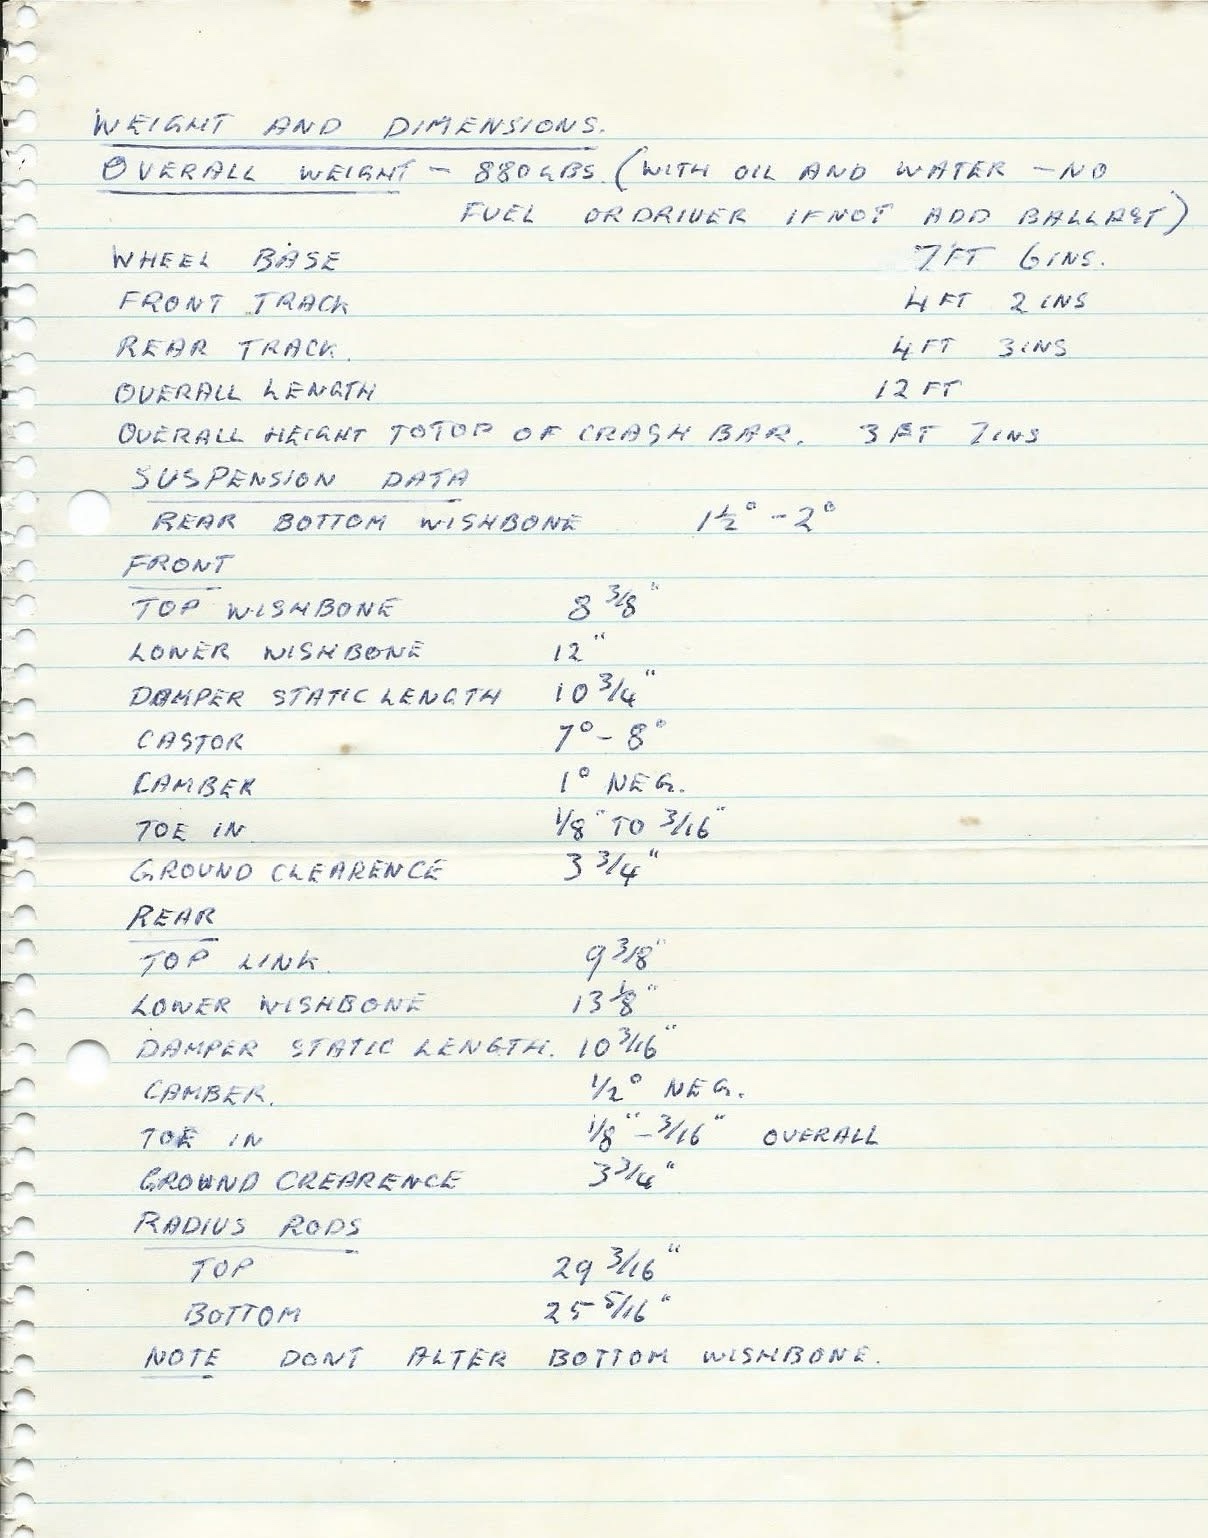 WEIGHT AND DIMENSIONS.
OVERALL WEIGHT - 880 LBS. (WITH OIL AND WATER - NO
FUEL OR DRIVER IF NOT ADD BALLAST)
WHEEL BASE 7 FT 6 INS.
FRONT TRACK 4 FT 2 INS
REAR TRACK. 4 FT 3 INS
OVERALL LENGTH 12 FT
OVERALL HEIGHT TO TOP OF CRASH BAR. 3 FT 7 INS
SUSPENSION DATA
REAR BOTTOM WISHBONE 1 1/2° - 2°
FRONT
TOP WISHBONE 8 3/8"
LOWER WISHBONE 12"
DAMPER STATIC LENGTH 10 3/4"
CASTOR 7° - 8°
CAMBER 1° NEG.
TOE IN 1/8" TO 3/16"
GROUND CLEARENCE 3 3/4"
REAR
TOP LINK. 9 3/8"
LOWER WISHBONE 13 1/8"
DAMPER STATIC LENGTH. 10 3/16"
CAMBER. 1/2° NEG.
TOE IN 1/8" - 3/16" OVERALL
GROUND CREARENCE 3 3/4"
RADIUS RODS
TOP 29 3/16"
BOTTOM 25 5/16"
NOTE DONT ALTER BOTTOM WISHBONE.